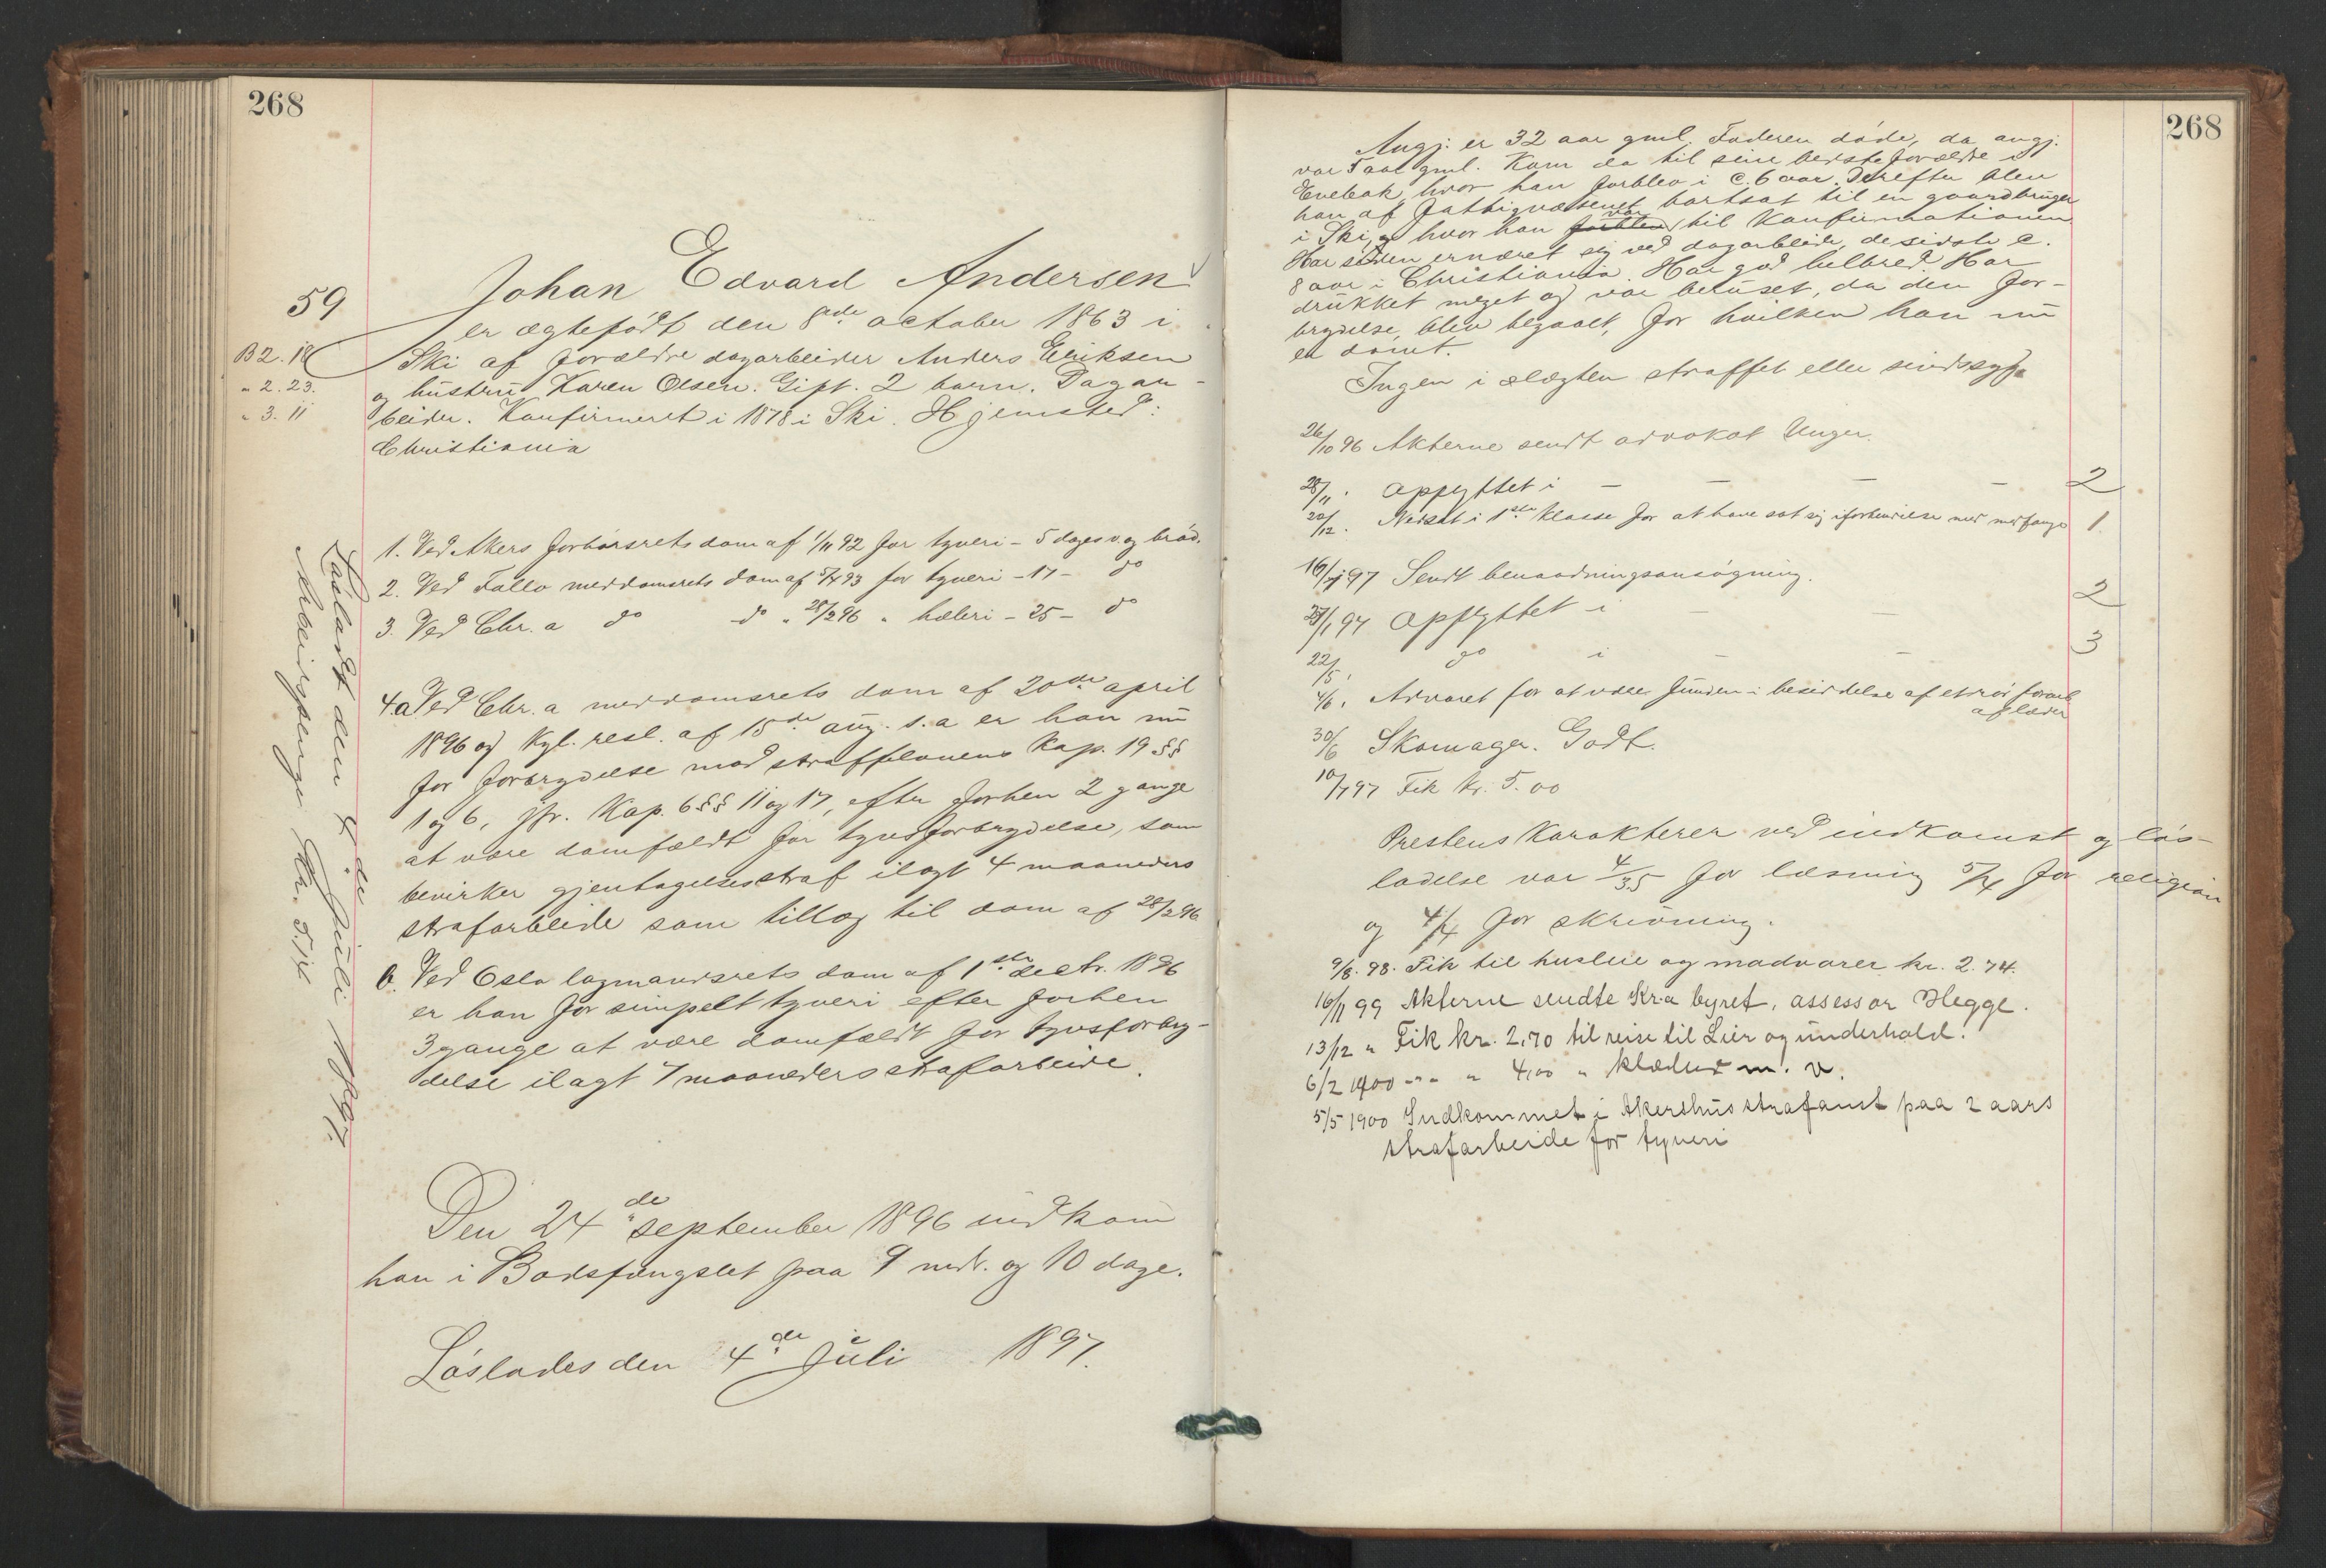 268
59
Johan Edvard Andersen
er ægtefödt den 8de october 1863 i
B 2. 18
Ski af forældre dagarbeider Anders Eriksen
" 2. 23.
og hustru Karen Olsen. Gift. 2 barn. Dagar-
" 3. 11
beider. Konfirmeret i 1878 i Ski. Hjemsted:
Christiania
1. Ved Akers forhörsrets dom af 1/11 92 for tyveri - 5 dages v og bröd.
2. Ved Follo meddomsrets dom af 5/4 93 for tyveri - 17 - do
3. Ved Chr.a do do " 28/2 96 " hæleri - 25 - do
4.a Ved Chr.a meddomsrets dom af 20de april
1896 og Kgl. resl. af 15de aug. s.a er han nu
for forbrydelse mod straffelovens Kap. 19 §§
1 og 6, jfr. Kap. 6 §§ 11 og 17, efter forhen 2 gange
at være domfældt for tyvsforbrydelse, som
bevirker gjentagelsesstraf ilagt 4 maaneders
strafarbeide som tillæg til dom af 28/2 96
b. Ved Oslo lagmandsrets dom af 1ste decbr. 1896
er han for simpelt tyveri efter forhen
3 gange at være domfældt for tyvsforbry-
delse ilagt 7 maaneders strafarbeide.
Den 24de september 1896 indkom
han i Bodsfængslet paa 9 mdr. og 10 dage.
Löslades den 4de Juli 1897.
Lösladt den 4de Juli 1897.
Arbeidspenge Kr.
268
Angj. er 32 aar gml. Faderen döde, da angj.
var 5 aar gml. Kom da til sine bedsteforældre i
Enebak, hvor han forblev i c. 6 aar. Derefter blev
han af fattigvæsenet bortsat til en gaardbruger
i Ski, og hvor han forblev var til Konfirmationen
Har siden ernæret sig ved dagarbeide, de sidste c.
8 aar i Christiania. Har god helbred. Har
drukket meget og var beruset, da den for-
brydelse blev begaaet, for hvilken han nu
er dömt.
Ingen i slægten straffet eller sindssyge
26/10 96 Akterne sendt advokat Unger.
28/11. Opflyttet i — — — — 2
20/12. Nedsat i 1ste klasse for at have sat sig i forbindelse med medfange 1.
16/1 97 Sendt benaadningsansögning.
28/1 97 Opflyttet i — — 2
22/5. do i — — 3
4/6. Advaret for at være funden i besiddelse af et rör forarb
af læder
30/6 Skomager. Godt.
10/7 97 Fik Kr. 5.00
Prestens Karakterer ved indkomst og lös-
ladelse var 4/3.5 for læsning 5/4 for religion
og 4/4 for skrivning.
9/8. 98. Fik til husleie og madvarer kr. 2.74.
16/11 99 Akterne sendte Kr.a byret, assessor Hegge.
13/12 " Fik kr. 2,70 til reise til Lier og underhold.
6/2 1900 " " " 4,00 " klæder m. v.
5/5 1900 Indkommet i Akershus strafanst paa 2 aars
strafarbeide for tyveri